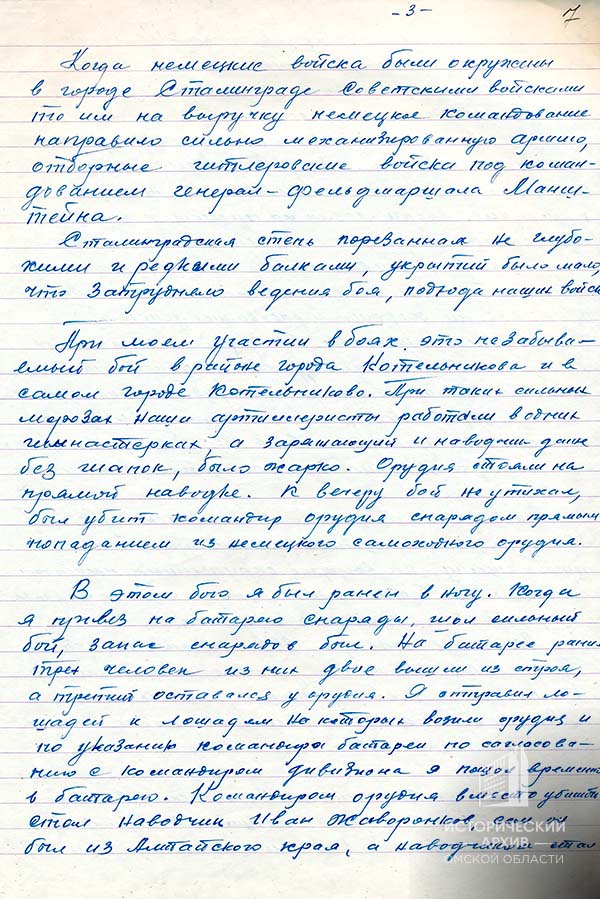 -3-
7
Когда немецкие войска были окружены
в городе Сталинграде Советскими войсками
то им на выручку немецкое командование
направило сильно механизированную армию,
отборные гитлеровские войска под коман-
дованием генерал-фельдмаршала Манш-
тейна.
Сталинградская степь порезанная не глубо-
кими и редкими балками, укрытий было мало,
что затрудняло ведения боя, подхода наших войск
При моем участии в боях, это незабыва-
емый бой в районе города Котельникова и в
самом городе Котельниково. При таких сильных
морозах наши артиллеристы работали в одних
гимнастерках, а заряжающий и наводчик даже
без шапок, было жарко. Орудия стояли на
прямой наводке. К вечеру бой не утихал,
был убит командир орудия снарядом прямым
попаданием из немецкого самоходного орудия.
В этом бою я был ранен в ногу. Когда
я привез на батарею снаряды, шол сильный
бой, запас снарядов был. На батарее ранил
трех человек из них двое вышли из строя,
а третий оставался у орудия. Я отправил ло-
шадей к лошадям на которых возили орудия и
по указанию командира батареи по согласова-
нию с командиром дивизиона я пошол временно
в батарею. Командиром орудия вместо убитого
стал наводчик Иван Жаворонков сам он
был из Алтайского края, а наводчиком стал
ИСТОРИЧЕСКИЙ
АРХИВ
ОМСКОЙ ОБЛАСТИ